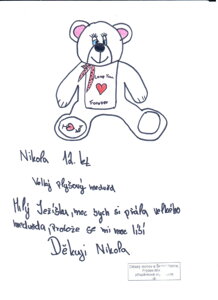 Love You
Forever
Nikola 12. let
Velký plyšový medvěd
Milý Ježíšku, moc bych si přála velkého
medvěda Protože se mi moc líbí
Děkuji Nikola